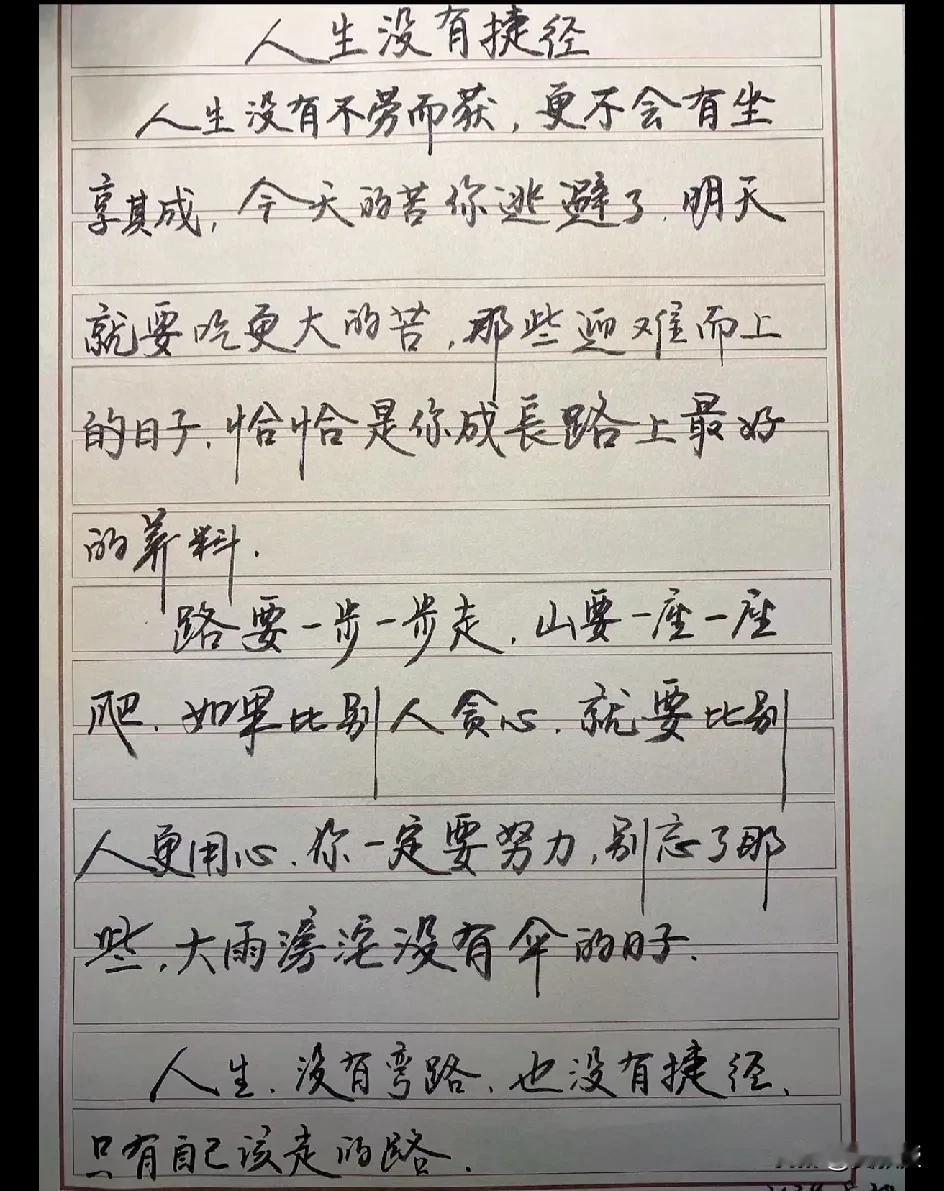 人生没有捷径
人生没有不劳而获，更不会有坐
享其成，今天的苦你逃避了.明天
就要吃更大的苦，那些迎难而上
的日子.恰恰是你成長路上最好
的养料.
路要一步一步走.山要一座一座
爬.如果比别人贪心.就要比别
人更用心.你一定要努力,别忘了那
些,大雨滂沱没有伞的日子.
人生.没有弯路.也没有捷径.
只有自己该走的路.